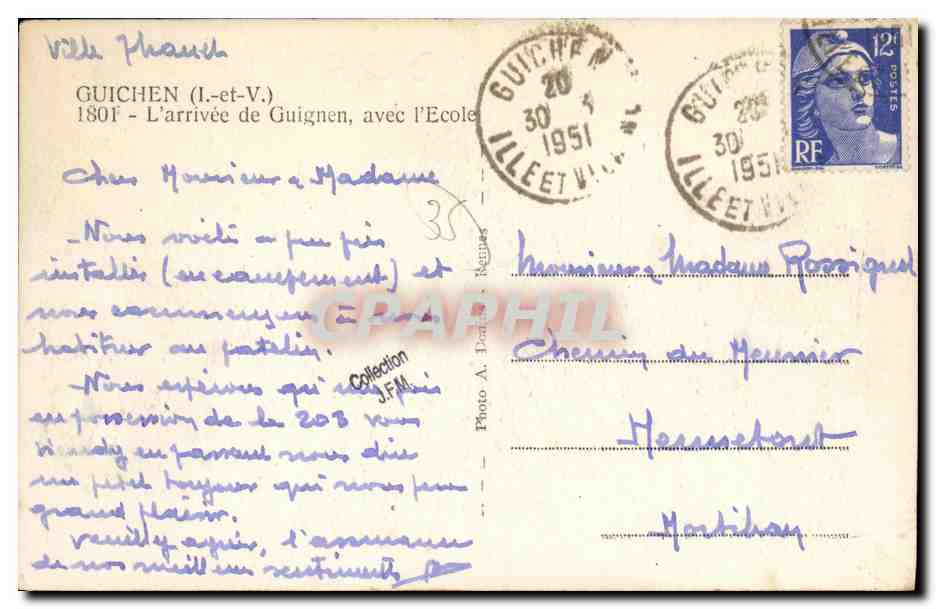 GUICHEN (I.-et-V.)
1801 - L'arrivée de Guignen, avec l'Ecole
Chers Monsieur & Madame
Nous voilà à peu près
installés (en campement) et
nous commençons à nous
habituer au patelin.
Nous espérons qu'une fois
en possession de la 203 vous
viendrez en passant nous dire
un petit toujours qui nous fera
grand plaisir.
Veuillez agréer, l'assurance
de nos meilleurs sentiments
35
Photo A. Rennes
Collection
J.F.M.
CPARPHIL
GUICHEN
20
30
1951
ILLE ET
GUICHEN
20
30
1951
ILLE ET
12F
POSTES
RF
Monsieur & Madame Rossignol
Chemin du Meunier
Hennebont
Morbihan